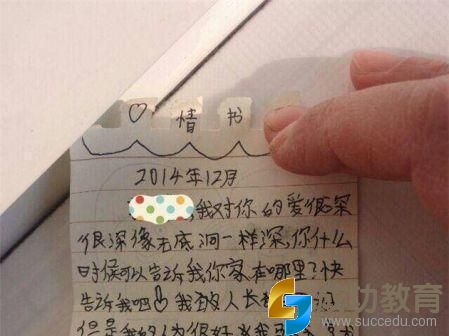 ♡ 情书
2014年12月
,我对你的爱很深
很深像无底洞一样深,你什么
时候可以告诉我你家在哪里?快
告诉我吧 我
但是我的人很好
功教育
www.succedu.com